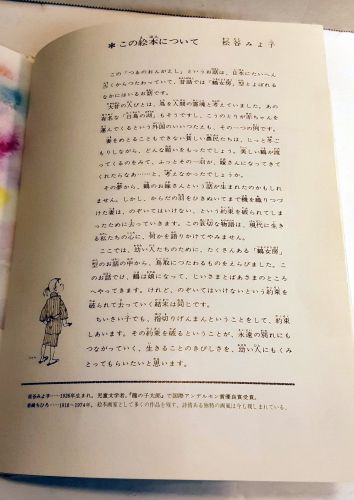 ＊この絵本について　松谷みよ子
この「つるのおんがえし」というお話は、日本にたいへん
広くからつたわっていて、昔話では「鶴女房」型とよばれるな
かにはいるお話です。
大昔の人びとは、鳥を人間の霊魂と考えていました。あの
有名な「白鳥の湖」もそうですし、こうのとりが赤ちゃんを
運んでくるという外国のいいつたえも、その一つの例です。
妻をめとることもできない貧しい農民たちは、じっと冬ご
もりしながら、どんな願いをもったでしょう。美しい鶴が渡
ってくるのをみて、ふっとその一羽が、嫁さんになってきて
くれたらなあ……と、考えなかったでしょうか。
その夢から、鶴のお嫁さんという話が生まれたのかもしれ
ません。しかし、からだの羽をひきぬいてまで機を織りつづ
けた妻は、のぞいてはいけない、という約束を破られてしま
ったために去っていきます。この哀切な物語は、現代に生き
る私たちの心に、何かを語りかけてやみません。
ここでは、幼い人たちのために、たくさんある「鶴女房」
型のお話の中から、鳥取につたわるものをえらびました。こ
のお話では、鶴は娘になって、じいさまとばあさまのところ
へやってきます。けれど、のぞいてはいけないという約束を
破られて去っていく結末は同じです。
ちいさい子でも、指切りげんまんということをして、約束
しあいます。その約束を破るということが、永遠の別れにも
つながっていく、生きることのきびしさを、幼い人にもくみ
とってもらいたいと思います。
松谷みよ子……1926年生まれ。児童文学者。『龍の子太郎』で国際アンデルセン賞優良賞受賞。
岩崎ちひろ……1918〜1974年。絵本画家として多くの作品を残す。詩情ある独特の画風は今も親しまれている。